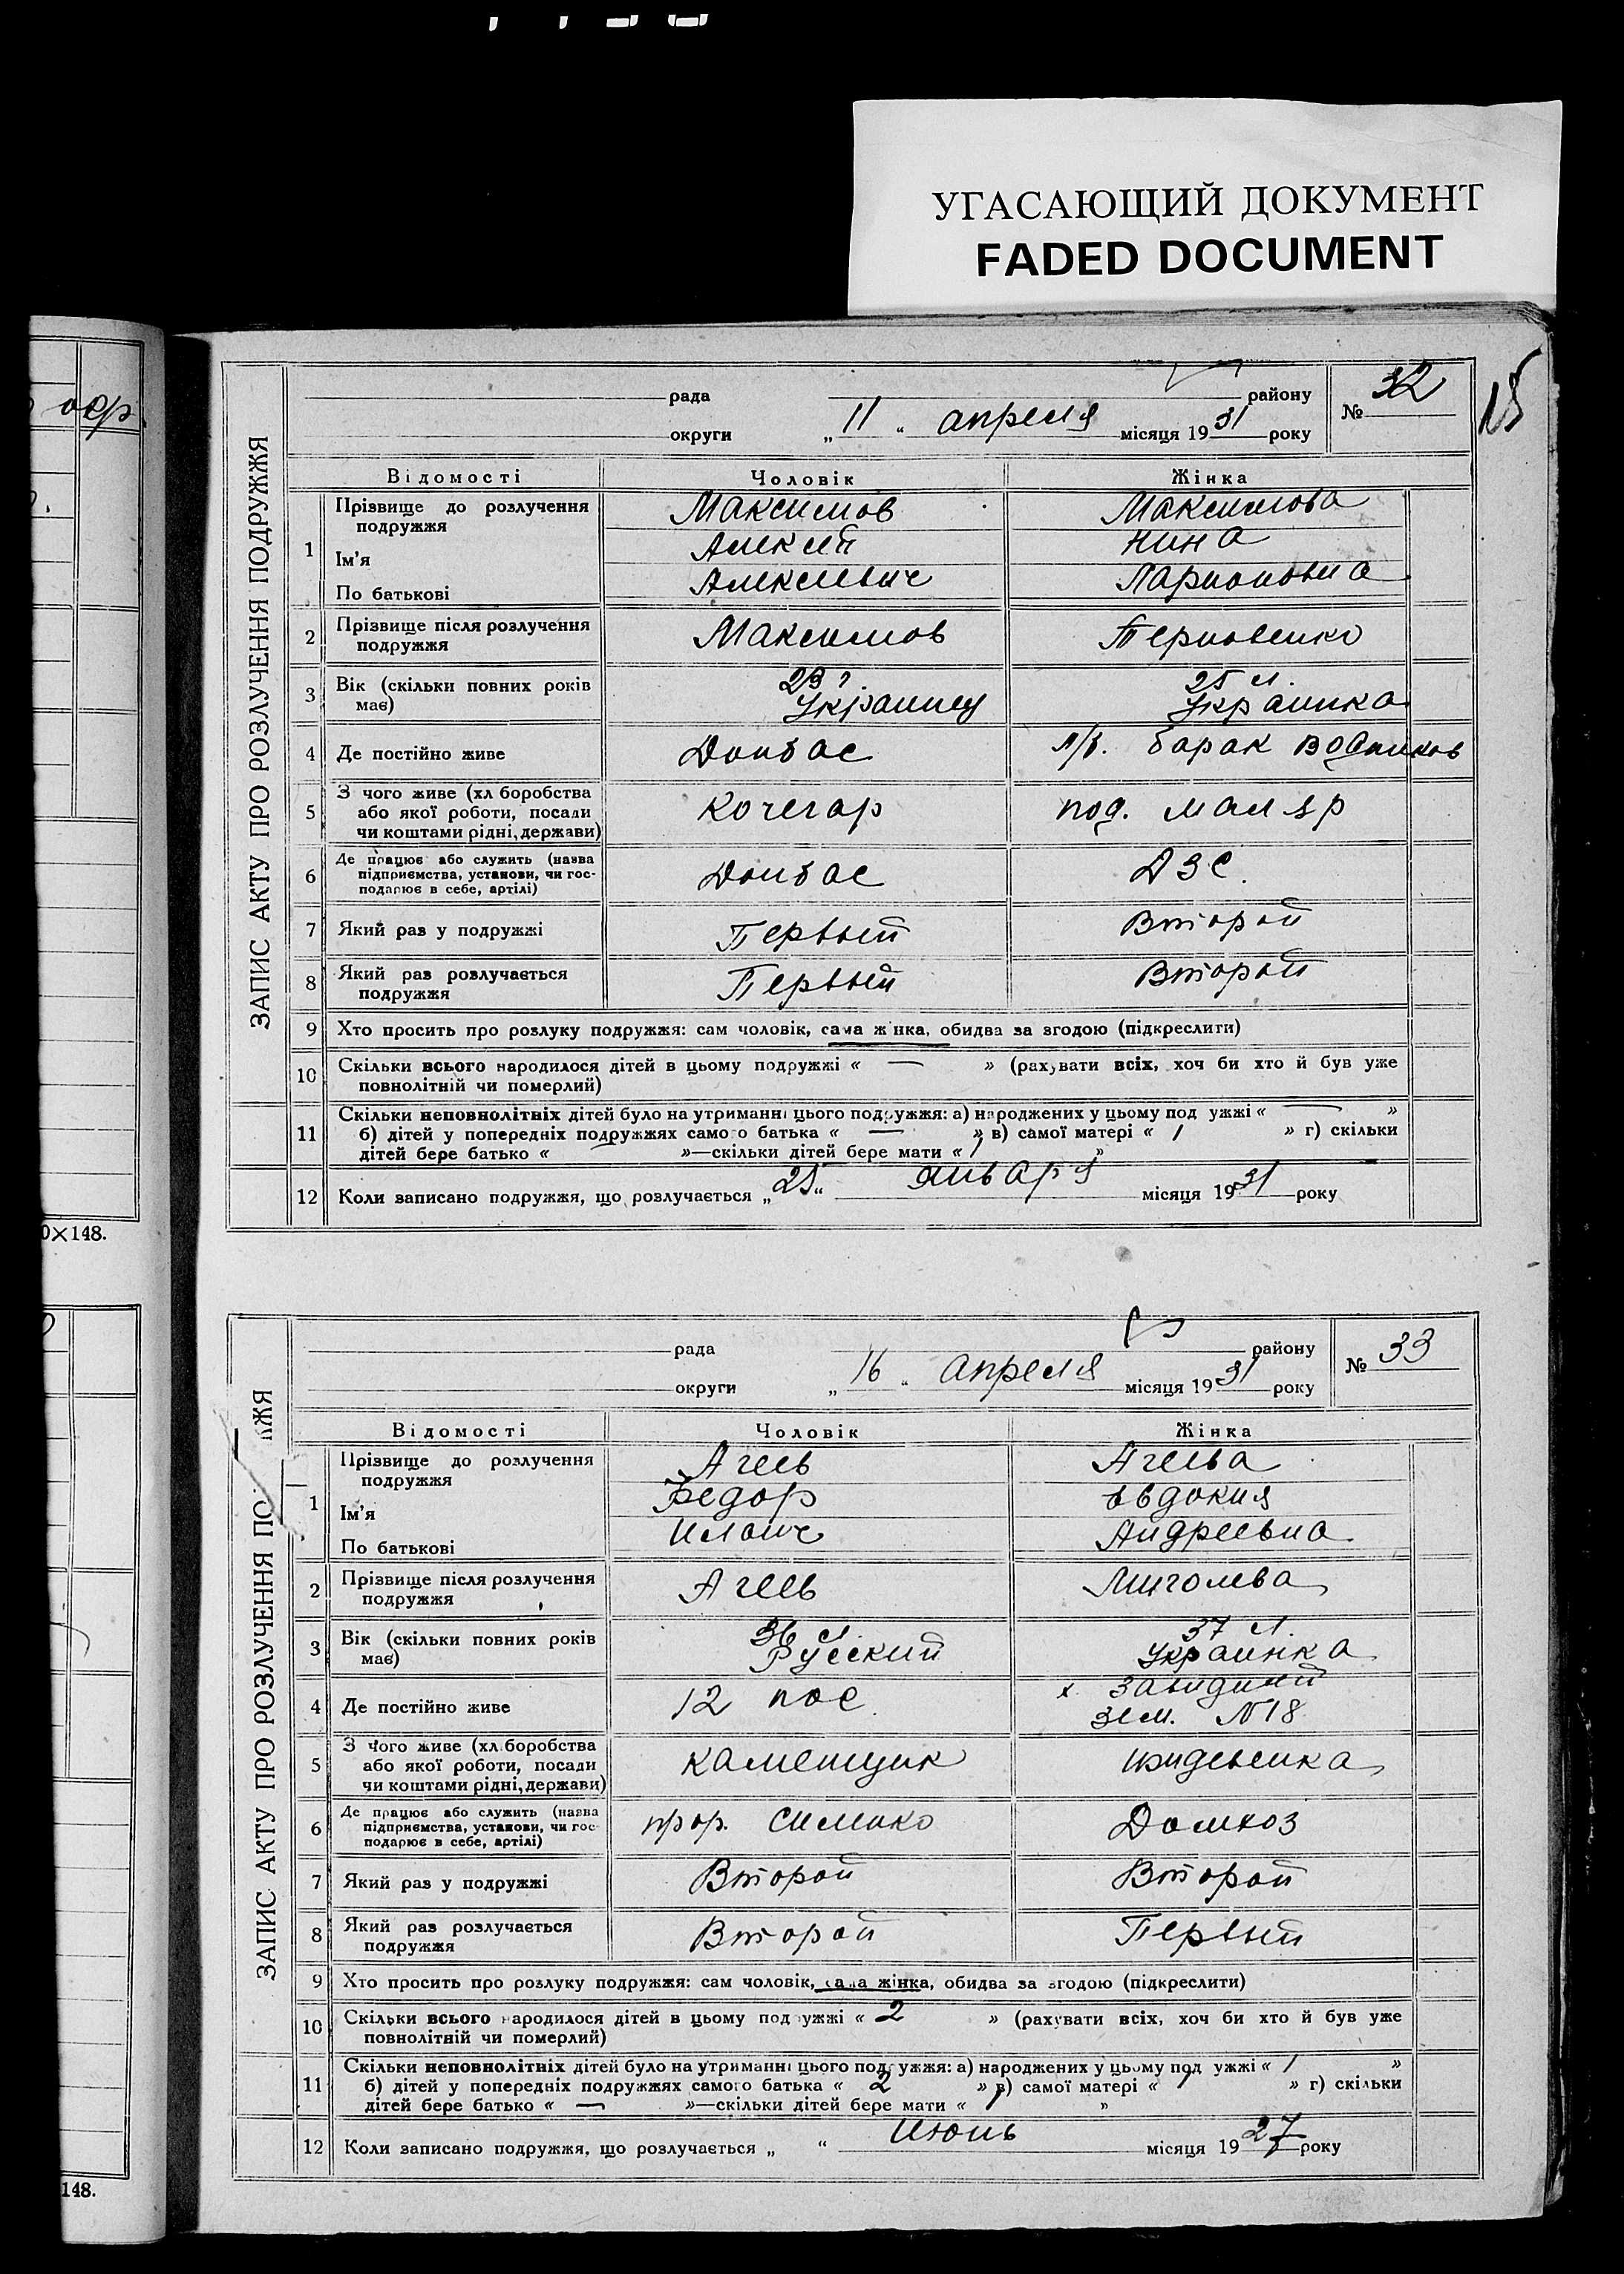 УГАСАЮЩИЙ ДОКУМЕНТ
FADED DOCUMENT
оер
0×148.
148.
15
ЗАПИС АКТУ ПРО РОЗЛУЧЕННЯ ПОДРУЖЖЯ
рада району № 32
округи „ 11 “ апреля місяця 19 31 року
Відомості Чоловік Жінка
1 Прізвище до розлучення подружжя Максимов Максимова
Ім'я Алексей Нина
По батькові Алексеевич Ларионовна
2 Прізвище після розлучення подружжя Максимов Терновенко
3 Вік (скільки повних років має) 29 25 л.
Украинец Украинка
4 Де постійно живе Донбас л/б. барак Водников
5 З чого живе (хл боробства або якої роботи, посади чи коштами рідні, держави) Кочегар под. маляр
6 Де працює або служить (назва підприємства, установи, чи господарює в себе, артілі) Донбас ДЗС.
7 Який раз у подружжі Первый Второй
8 Який раз розлучається подружжя Первый Второй
9 Хто просить про розлуку подружжя: сам чоловік, сама жінка, обидва за згодою (підкреслити)
10 Скільки всього народилося дітей в цьому подружжі « — » (рахувати всіх, хоч би хто й був уже
повнолітній чи померлий)
11 Скільки неповнолітніх дітей було на утриманні цього подружжя: а) народжених у цьому под ужжі « — »
б) дітей у попередніх подружжях самого батька « — » в) самої матері « 1 » г) скільки
дітей бере батько « — »—скільки дітей бере мати « 1 »
12 Коли записано подружжя, що розлучається „ 25 “ января місяця 19 31 року
ЗАПИС АКТУ ПРО РОЗЛУЧЕННЯ ПО ЖЖЯ
рада району № 33
округи „ 16 “ апреля місяця 19 31 року
Відомості Чоловік Жінка
1 Прізвище до розлучення подружжя Агеев Агеева
Ім'я Федор Евдокия
По батькові Илоич Андреевна
2 Прізвище після розлучення подружжя Агеев Миголева
3 Вік (скільки повних років має) 36 л. 37 л.
Русский Украинка
4 Де постійно живе 12 пос. х.
зем. №18
5 З чого живе (хл.боробства або якої роботи, посади чи коштами рідні, держави) каменщик иждевенка
6 Де працює або служить (назва підприємства, установи, чи господарює в себе, артілі) прор. Симико Домхоз
7 Який раз у подружжі Второй Второй
8 Який раз розлучається подружжя Второй Первый
9 Хто просить про розлуку подружжя: сам чоловік, сама жінка, обидва за згодою (підкреслити)
10 Скільки всього народилося дітей в цьому подружжі « 2 » (рахувати всіх, хоч би хто й був уже
повнолітній чи померлий)
11 Скільки неповнолітніх дітей було на утриманні цього подружжя: а) народжених у цьому под ужжі « 1 »
б) дітей у попередніх подружжях самого батька « 2 » в) самої матері « 1 » г) скільки
дітей бере батько « — »—скільки дітей бере мати « 1 »
12 Коли записано подружжя, що розлучається „ “ Июнь місяця 19 27 року